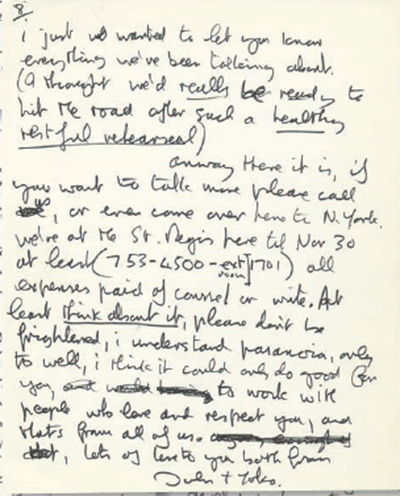 8/
i just wanted to let you know
everything we've been talking about.
(a thought we'd really be ready to
hit the road after such a healthy
restful rehearsal)
anyway there it is, if
you want to talk more please call
us, or even come over here to N. York.
we're at the St. Regis here til Nov 30
at least (753-4500-ext room 1701) all
expenses paid of course! or write. At
least think about it, please don't be
frightened, i understand paranoia, only
to well, i think it could only do good for
you, to work with
people who love and respect you, and
that's from all of us.
, lots of love to you both from
John + Yoko.